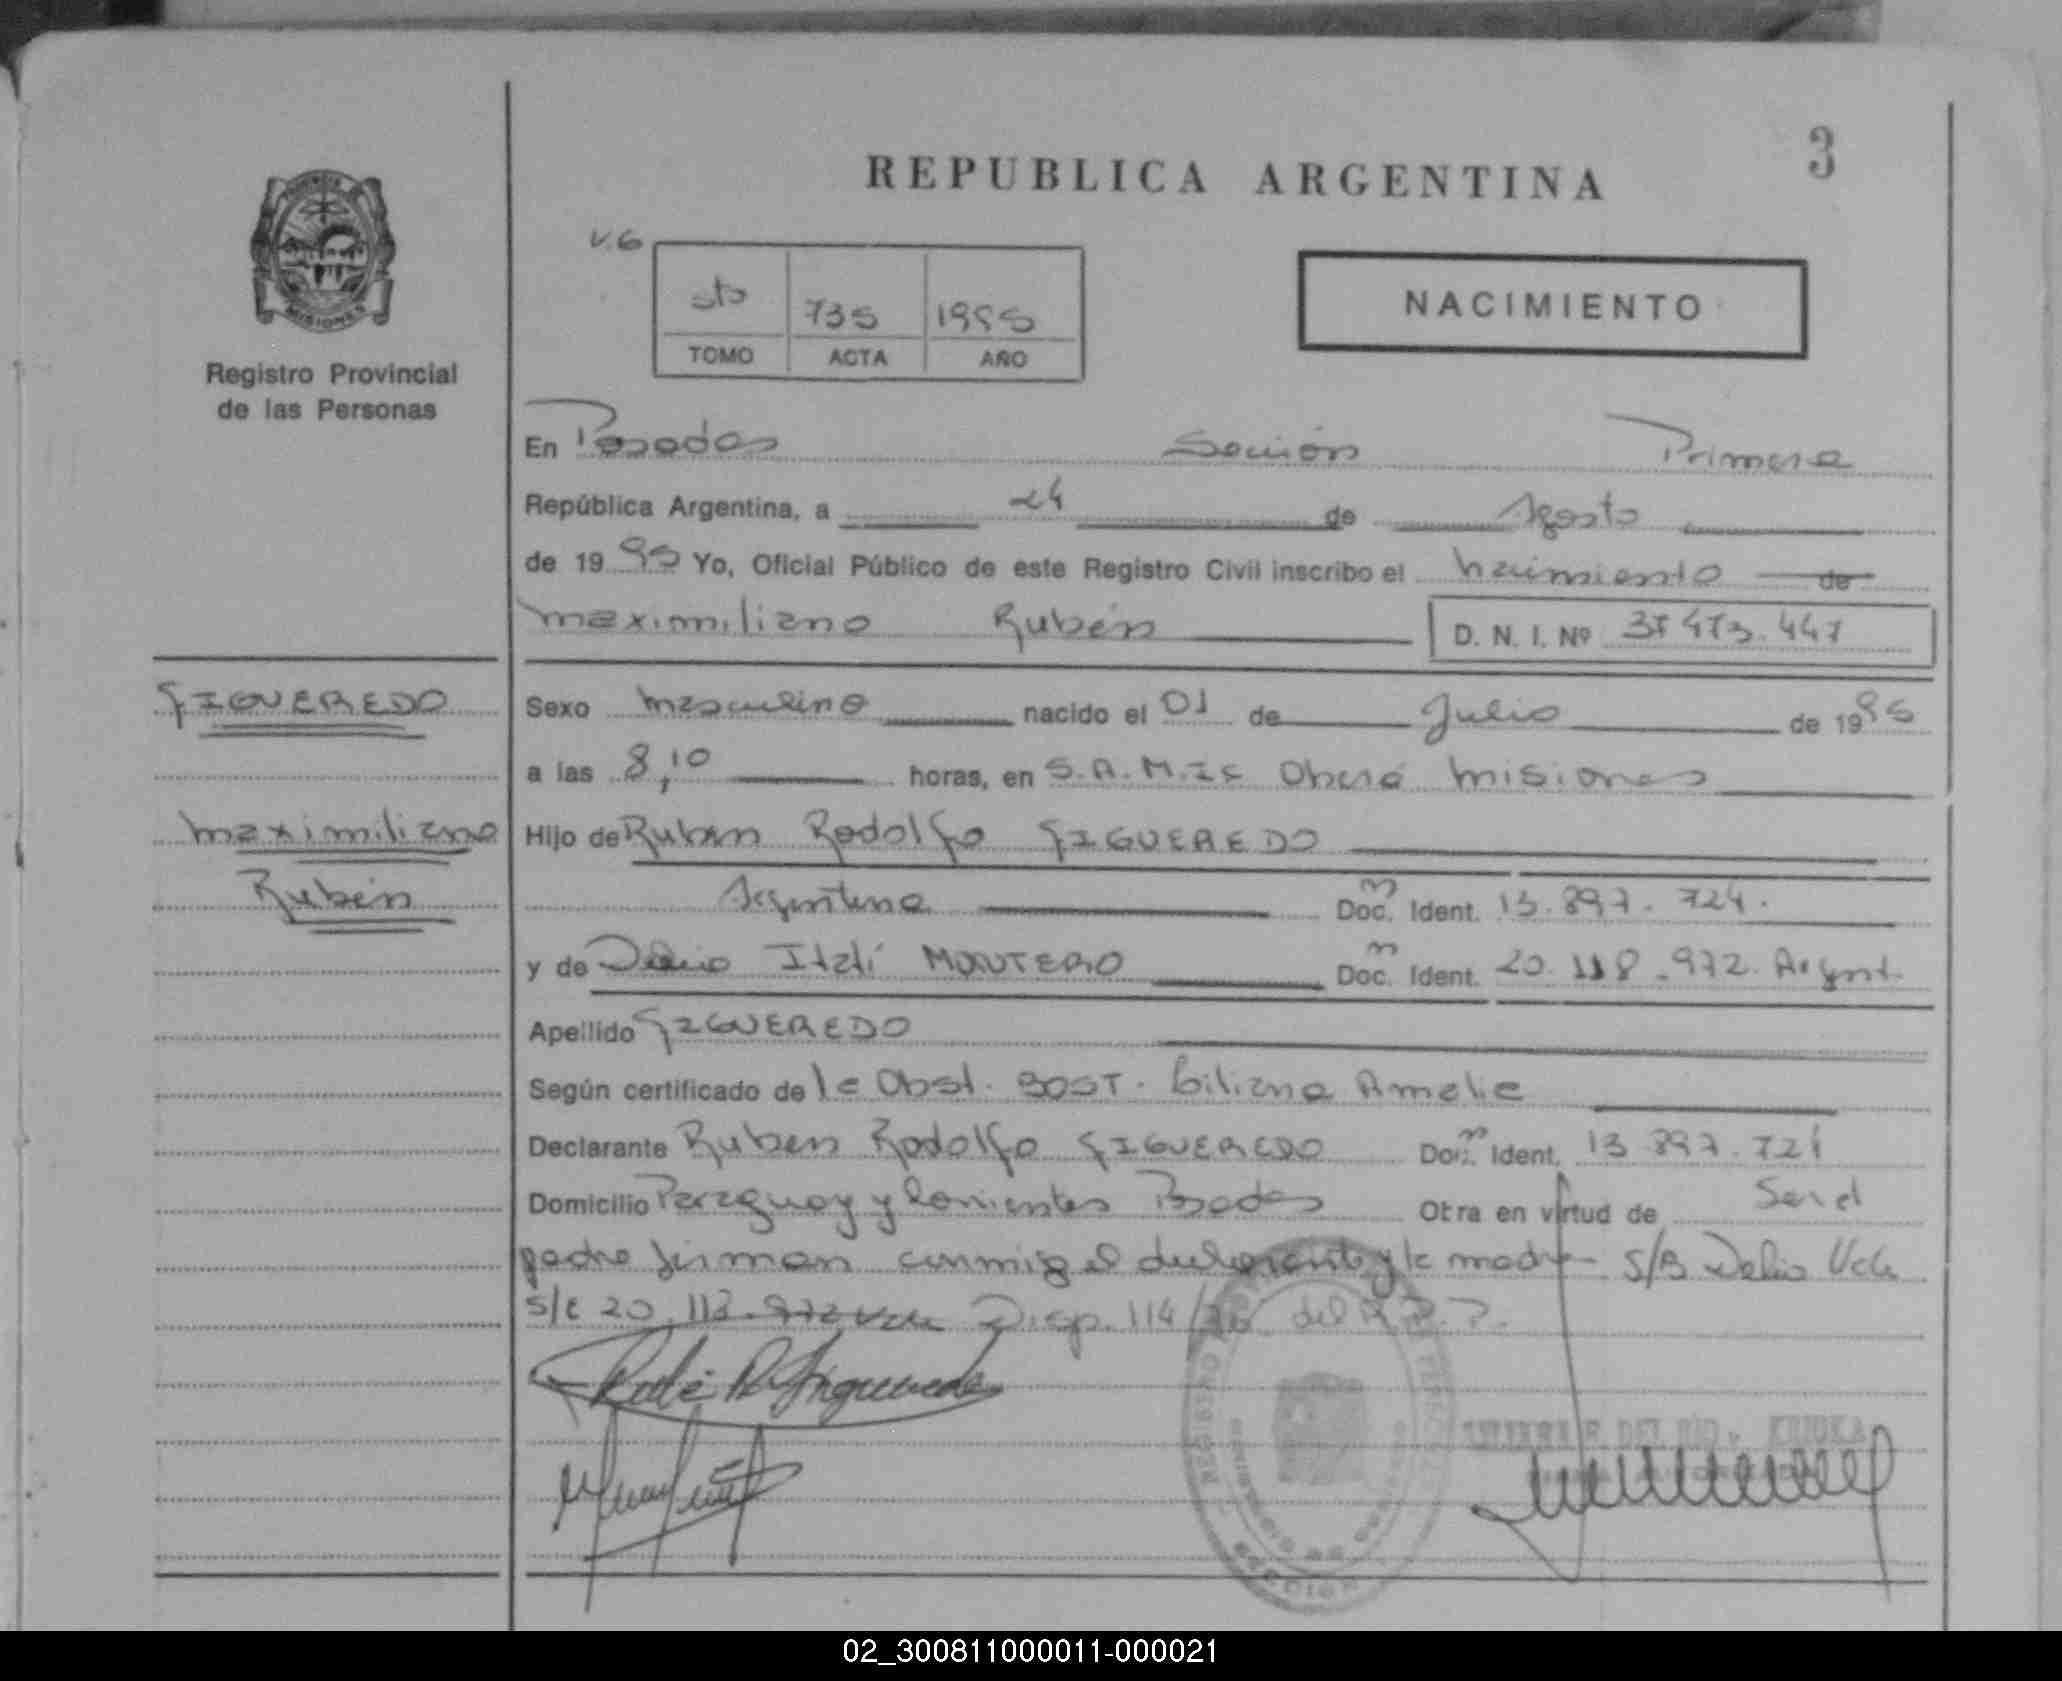 REPUBLICA ARGENTINA
3
MISIONES
Registro Provincial
de las Personas
V.6
5to 735 1995
TOMO ACTA AÑO
NACIMIENTO
En Posadas Sección Primera
República Argentina, a 24 de Agosto
de 1995 Yo, Oficial Público de este Registro Civil inscribo el nacimiento de
Maximiliano Rubén D. N. I. Nº 37 473.447
FIGUEREDO
Maximiliano
Rubén
Sexo Masculino nacido el 01 de Julio de 1995
a las 8,10 horas, en S.A.M.IC Oberá Misiones
Hijo de Rubén Rodolfo FIGUEREDO
Argentina Doc. Ident. 13.897.724.
y de Delia Itatí MONTERO Doc. Ident. 20.118.972. Argent.
Apellido FIGUEREDO
Según certificado de la Obst. BOST. Liliana Amalia
Declarante Ruben Rodolfo FIGUEREDO Doc. Ident. 13 897.724
Domicilio Paraguay y Corrientes Posadas Otra en virtud de Ser el
padre firman conmigo el declarante y la madre S/B Delia Vale
S/E 20.118.972 Vale Disp. 114/ del R.P.P.
REGISTRO
SECCION
DEL RIO
02_300811000011-000021